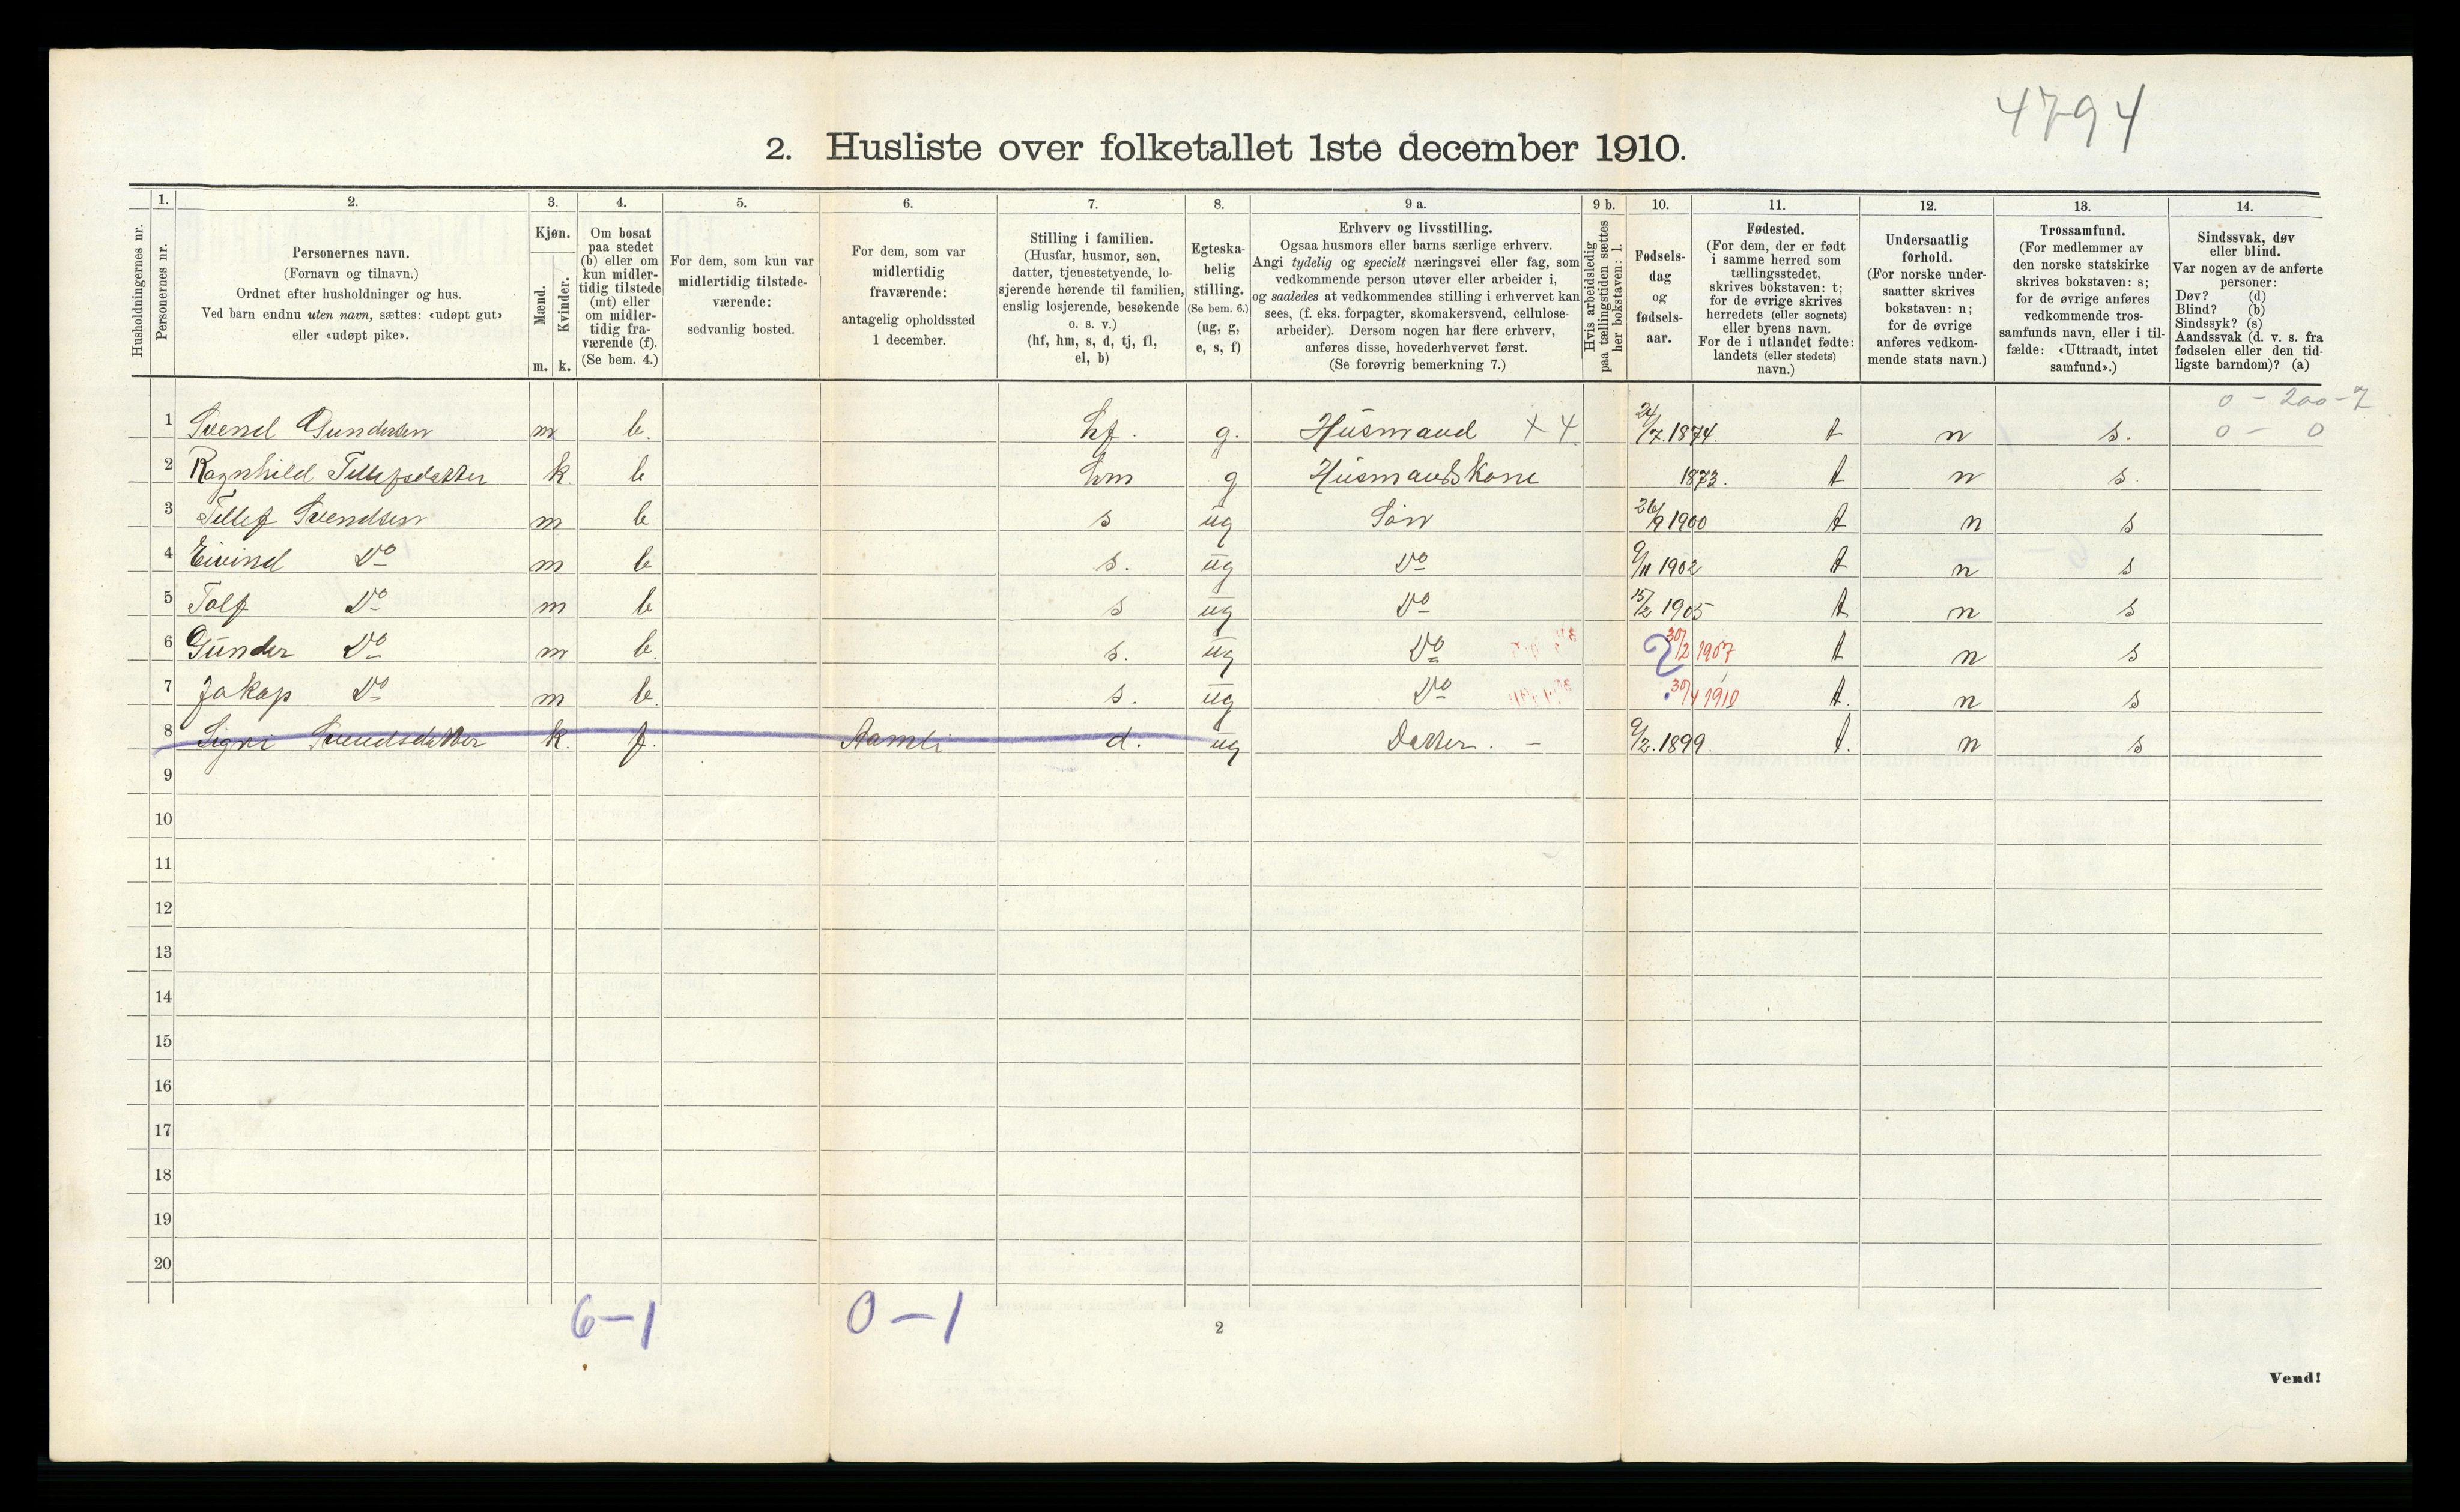 4794
2. Husliste over folketallet 1ste december 1910.
Husholdningernes nr.
1.
Personernes nr.
2.
Personernes navn.
(Fornavn og tilnavn.)
Ordnet efter husholdninger og hus.
Ved barn endnu uten navn, sættes: «udøpt gut»
eller «udøpt pike».
3.
Kjøn.
Mænd.
Kvinder.
m. k.
4.
Om bosat
paa stedet
(b) eller om
kun midler-
tidig tilstede
(mt) eller
om midler-
tidig fra-
værende (f).
(Se bem. 4.)
5.
For dem, som kun var
midlertidig tilstede-
værende:
sedvanlig bosted.
6.
For dem, som var
midlertidig
fraværende:
antagelig opholdssted
1 december.
7.
Stilling i familien.
(Husfar, husmor, søn,
datter, tjenestetyende, lo-
sjerende hørende til familien,
enslig losjerende, besøkende
o. s. v.)
(hf, hm, s, d, tj, fl,
el, b)
8.
Egteska-
belig
stilling.
(Se bem. 6.)
(ug, g,
e, s, f)
9 a.
Erhverv og livsstilling.
Ogsaa husmors eller barns særlige erhverv.
Angi tydelig og specielt næringsvei eller fag, som
vedkommende person utøver eller arbeider i,
og saaledes at vedkommendes stilling i erhvervet kan
sees, (f. eks. forpagter, skomakersvend, cellulose-
arbeider). Dersom nogen har flere erhverv,
anføres disse, hovederhvervet først.
(Se forøvrig bemerkning 7.)
9 b.
Hvis arbeidsledig
paa tællingstiden sættes
her bokstaven: l.
10.
Fødsels-
dag
og
fødsels-
aar.
11.
Fødested.
(For dem, der er født
i samme herred som
tællingsstedet,
skrives bokstaven: t;
for de øvrige skrives
herredets (eller sognets)
eller byens navn.
For de i utlandet fødte:
landets (eller stedets)
navn.)
12.
Undersaatlig
forhold.
(For norske under-
saatter skrives
bokstaven: n;
for de øvrige
anføres vedkom-
mende stats navn.)
13.
Trossamfund.
(For medlemmer av
den norske statskirke
skrives bokstaven: s;
for de øvrige anføres
vedkommende tros-
samfunds navn, eller i til-
fælde: «Uttraadt, intet
samfund».)
14.
Sindssvak, døv
eller blind.
Var nogen av de anførte
personer:
Døv? (d)
Blind? (b)
Sindssyk? (s)
Aandssvak (d. v. s. fra
fødselen eller den tid-
ligste barndom)? (a)
0 - 200 - 7
1 Svend Gundersen m b. hf. g. Husmand X 4 24/7.1874. t n s. 0 - 0
2 Ragnhild Tellefsdatter k b hm g Husmandskone 1873. t n s.
3 Tellef Svendsen m b s ug Søn 26/9 1900 t n s
4 Eivind Do m b s. ug Do 9/11 1902 t n s
5 Tolf Do m b s ug Do 15/2 1905 t n s
6 Gunder Do m b. s. ug Do 30/2 1907 t n s
7 Jakop Do m b. s. ug Do 30/4 1910 t. n s
8 Signe Svendsdatter k. f. Aamli d. ug Datter. - 9/2.1899. t. n s
9
10
11
12
13
14
15
16
17
18
19
20
6-1 0-1
2
Vend!